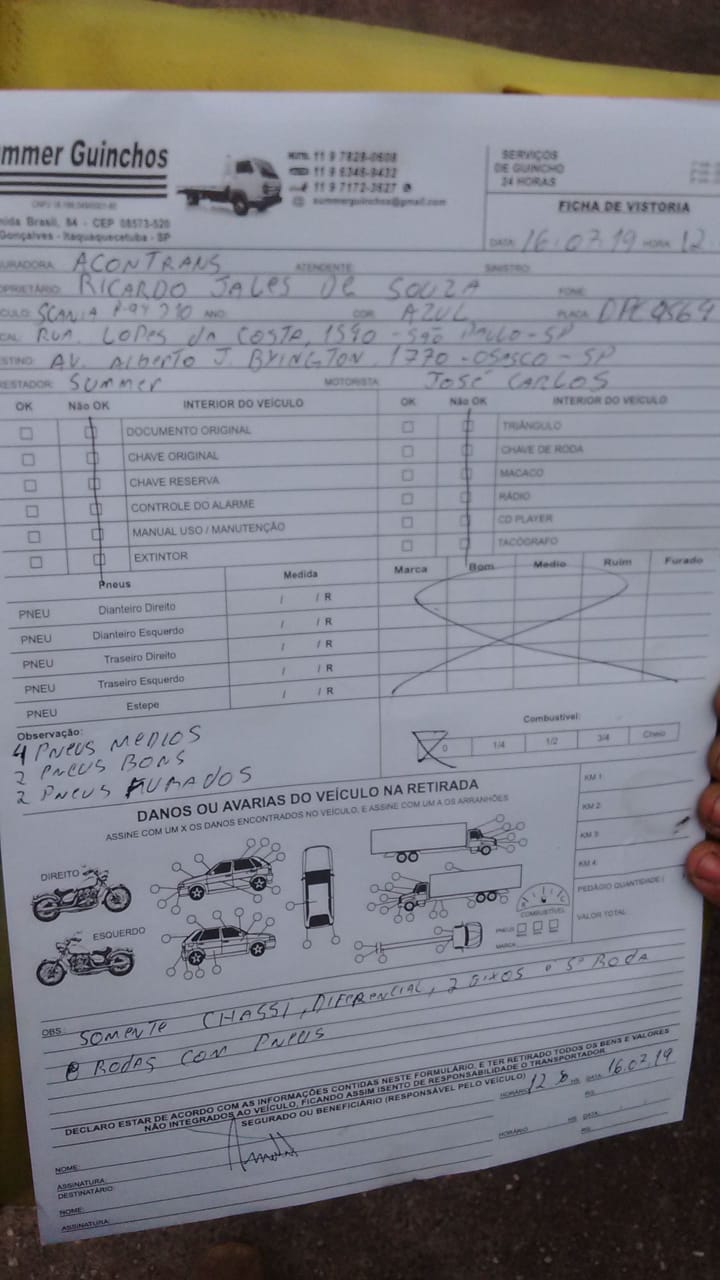 mmer Guinchos
11 9 7828-0608
11 9 6346-9432
11 9 7172-3627
summerguinchos@gmail.com
SERVIÇOS
DE GUINCHO
24 HORAS
FICHA DE VISTORIA
nida Brasil, 84 - CEP 08573-520
Gonçalves - Itaquaquecetuba - SP
DATA: 16.07.19 HORA: 12
URADORA: ACONTRANS ATENDENTE: SINISTRO:
OPRIETÁRIO: RICARDO JALES DE SOUZA FONE:
CULO: SCANIA ANO: COR: AZUL PLACA:
CAL: RUA. LOPES DA COSTA, 1590 - SÃO PAULO - SP
ESTINO: AV. ALBERTO J. BYINGTON, 1770 - OSASCO - SP
RESTADOR: SUMMER MOTORISTA: JOSÉ CARLOS
OK Não OK INTERIOR DO VEÍCULO OK Não OK INTERIOR DO VEÍCULO
DOCUMENTO ORIGINAL TRIÂNGULO
CHAVE ORIGINAL CHAVE DE RODA
CHAVE RESERVA MACACO
CONTROLE DO ALARME RÁDIO
MANUAL USO / MANUTENÇÃO CD PLAYER
EXTINTOR TACÓGRAFO
Pneus Medida Marca Bom Medio Ruim Furado
PNEU Dianteiro Direito / / R
PNEU Dianteiro Esquerdo / / R
PNEU Traseiro Direito / / R
PNEU Traseiro Esquerdo / / R
PNEU Estepe / / R
Observação:
4 PNEUS MEDIOS
2 PNEUS BONS
2 PNEUS FURADOS
Combustível:
0 1/4 1/2 3/4 Cheio
DANOS OU AVARIAS DO VEÍCULO NA RETIRADA
ASSINE COM UM X OS DANOS ENCONTRADOS NO VEÍCULO, E ASSINE COM UM A OS ARRANHÕES
KM 1:
KM 2:
KM 3:
KM 4:
PEDÁGIO QUANTIDADE (
VALOR TOTAL
DIREITO
ESQUERDO
COMBUSTÍVEL
PNEUS
MARCA
OBS.: SOMENTE CHASSI, DIFERENCIAL, 2 EIXOS e 5ª RODA
e RODAS COM PNEUS
DECLARO ESTAR DE ACORDO COM AS INFORMAÇÕES CONTIDAS NESTE FORMULÁRIO, E TER RETIRADO TODOS OS BENS E VALORES
NÃO INTEGRADOS AO VEÍCULO, FICANDO ASSIM ISENTO DE RESPONSABILIDADE O TRANSPORTADOR
SEGURADO OU BENEFICIÁRIO (RESPONSÁVEL PELO VEÍCULO)
HORÁRIO HS. DATA: 16.07.19
NOME: RG:
ASSINATURA:
DESTINATÁRIO: HORÁRIO: HS. DATA:
NOME: RG:
ASSINATURA: